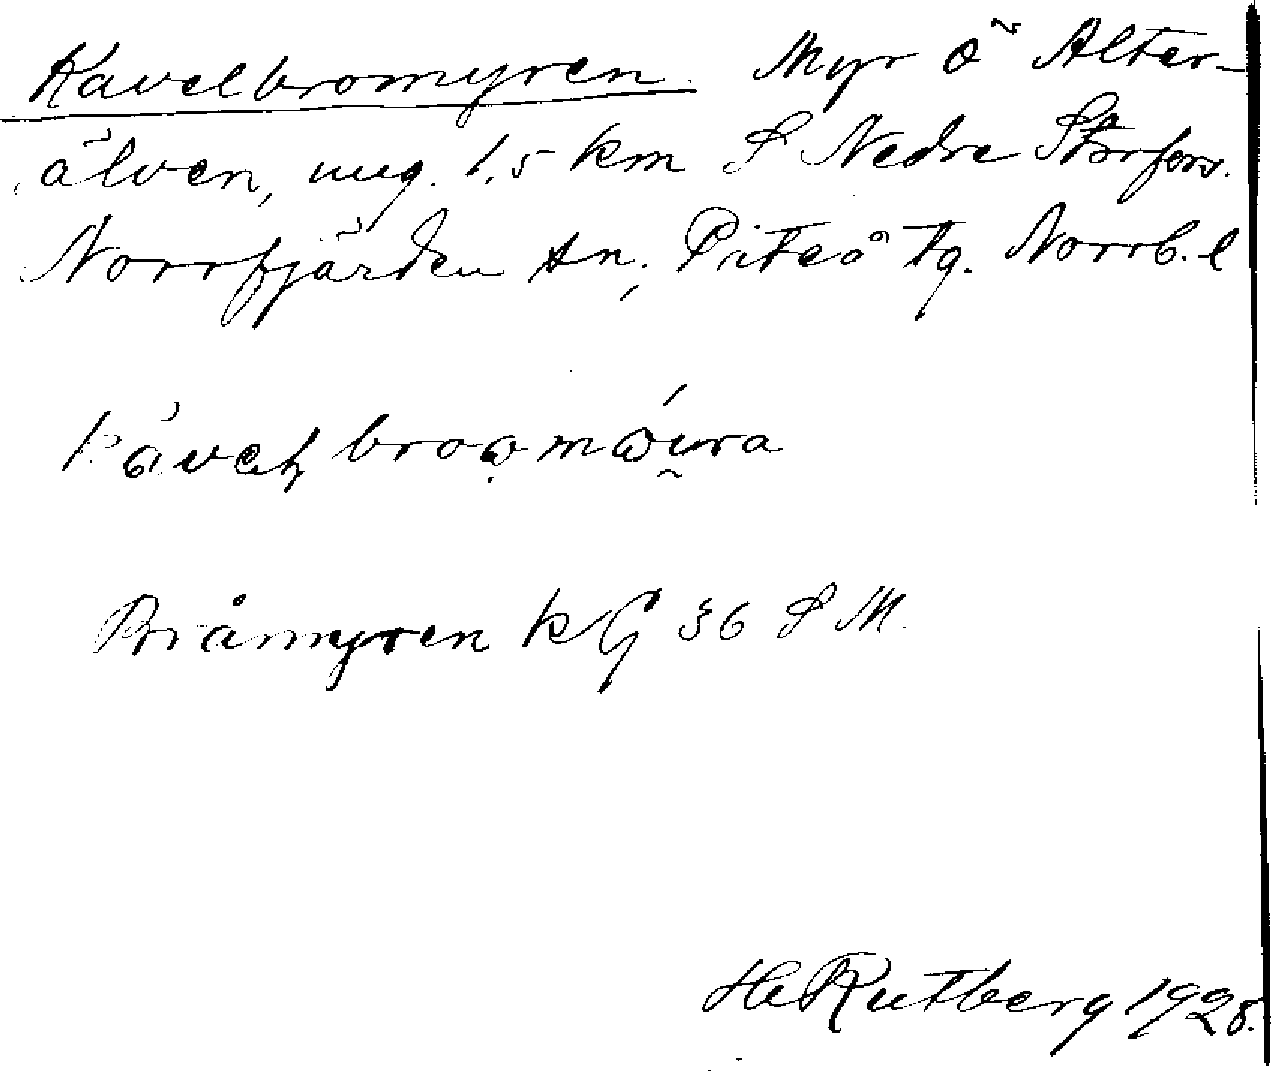 Kavelbromyren. Myr ö Alter-
älven, ung. 1,5 km S Nedre Storfors.
Norrfjärden sn, Piteå tg. Norrb. l
Bråmyren kG 36 S M.
H Rutberg 1928.